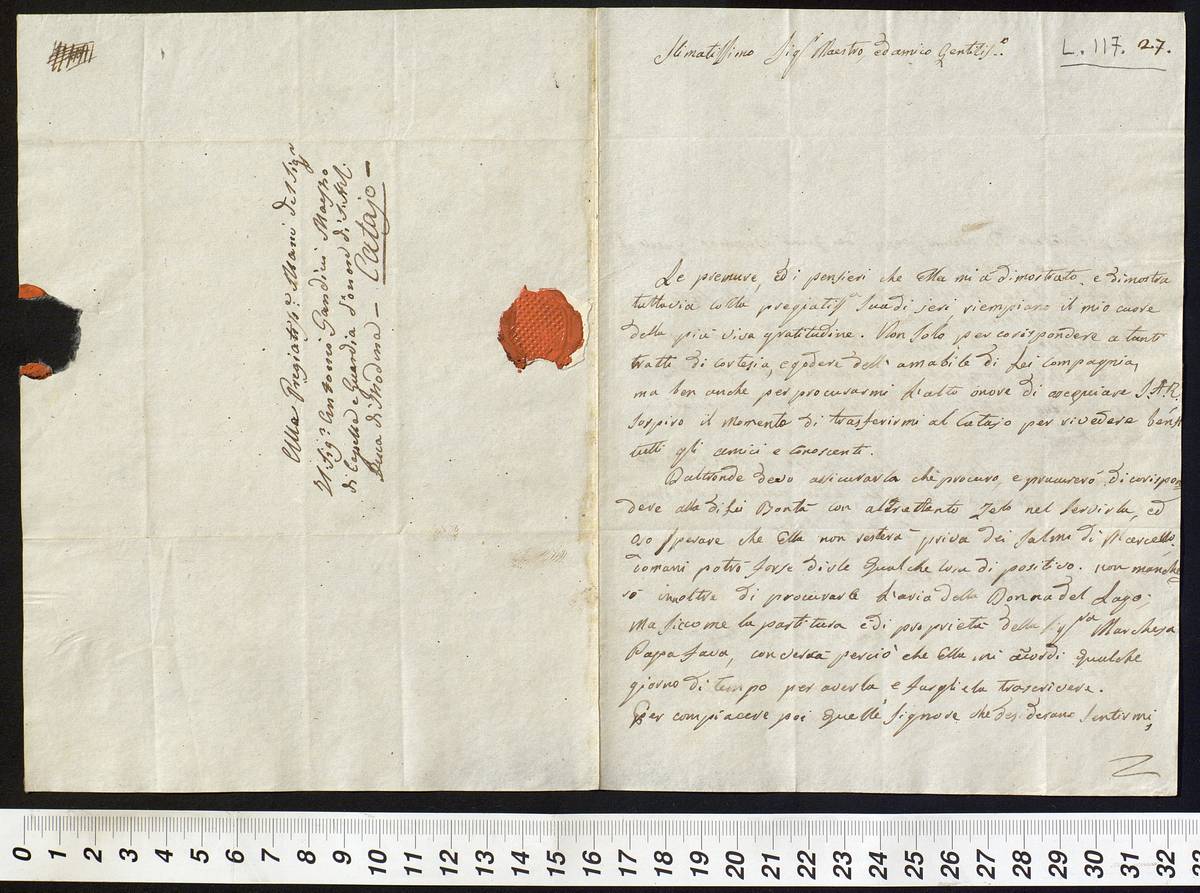 Alle Pregiatiss.e Mani del Sig.r
Il Sig.r Antonio Gandini Maestro
di Capella e Guardia d'onor di S.A.R.
Duca di Modena — Catajo —
L. 117. 27.
Stimatissimo Sig.r Maestro, ed amico Gentiliss.e
Le premure, ed i pensieri che Ella mi à dimostrato, e dimostra
tuttavia colla pregiatis.a Sua di jeri riempiano il mio cuore
della più viva gratitudine. Non solo per corispondere a tanti
tratti di cortesia, e godere dell'amabile di Lei compagnia,
ma ben anche per procurarmi l'alto onore di ossequiare S.A.R.
sospiro il momento di trasferirmi al Catajo per rivedere
tutti gli amici e conoscenti.
D'altronde devo assicurarla che procuro, e procurerò di corispon
dere alla di Lei Bontà con altrettanto Zelo nel servirla, ed
oso sperare che Ella non resterà priva dei Salmi di Marcello.
Domani potrò forse dirle qualche cosa di positivo. non manche
rò inoltre di procurarle l'aria della Donna del Lago;
ma siccome la partitura è di proprietà della Sig.ra Marchesa
Papafava, converrà perciò che Ella mi acordi qualche
giorno di tempo per averla e fargliela trascrivere.
Per compiacere poi quelle Signore che desiderano sentirmi,